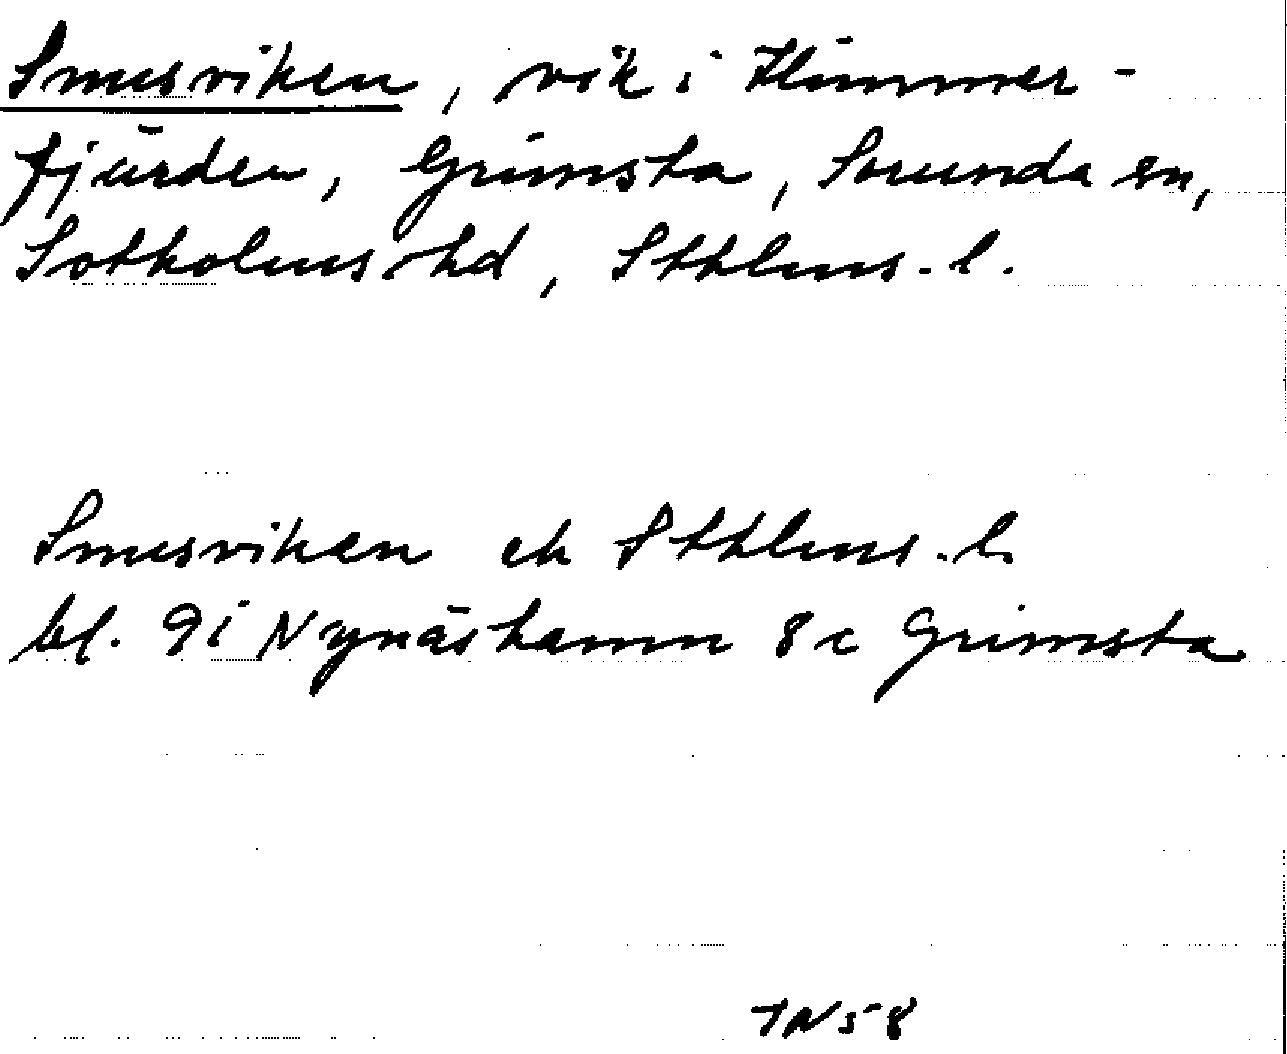 Smusviken, vik i Himmer-
fjärden, Grimsta, Sorunda sn,
Sotholms hd, Sthlms. l.
Smusviken ek Sthlms. l.
bl. 9i Nynäshamn 8c Grimsta
TN58